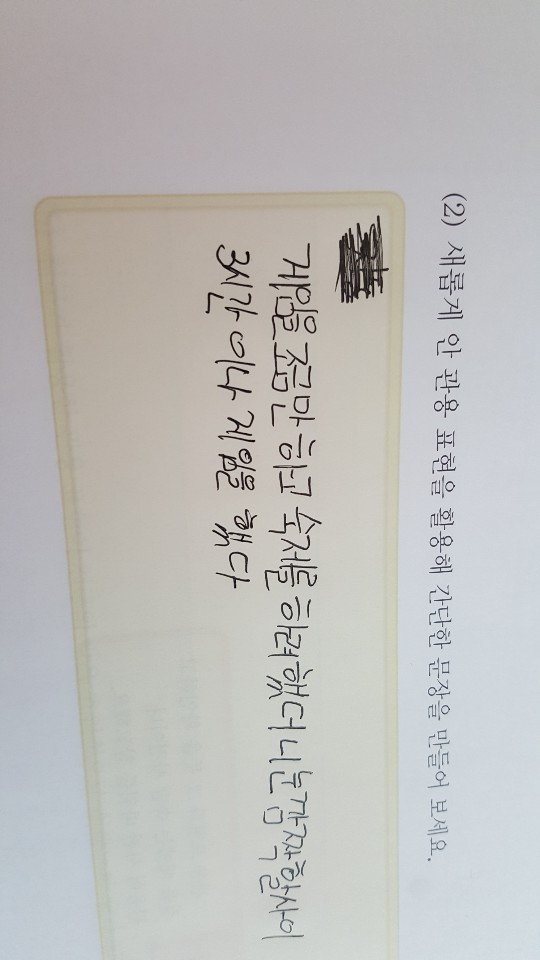 (2) 새롭게 안 관용 표현을 활용해 간단한 문장을 만들어 보세요.
게임을 조금만 하고 숙제를 하려했더니 눈깜짝할사이
3시간 이나 게임을 했다